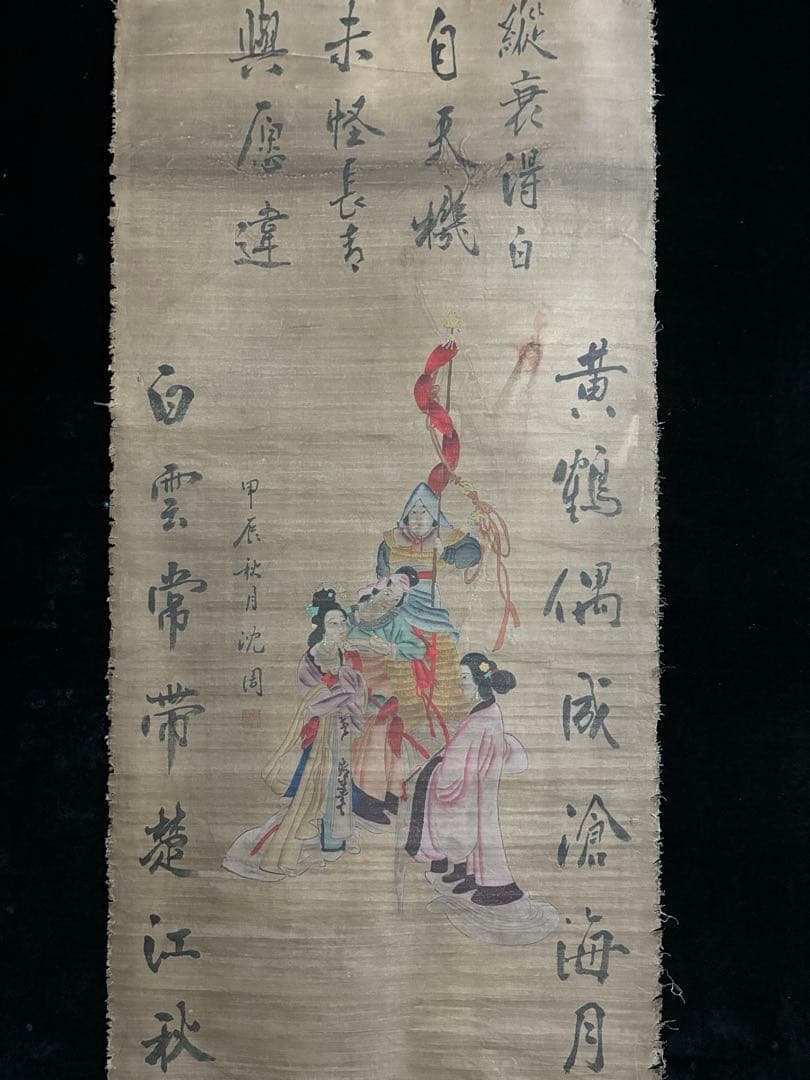 縱衰得白
自天機
未怪長
與愿違
黄鶴偶成滄海月
白雲常帶楚江秋
甲辰秋月沈周